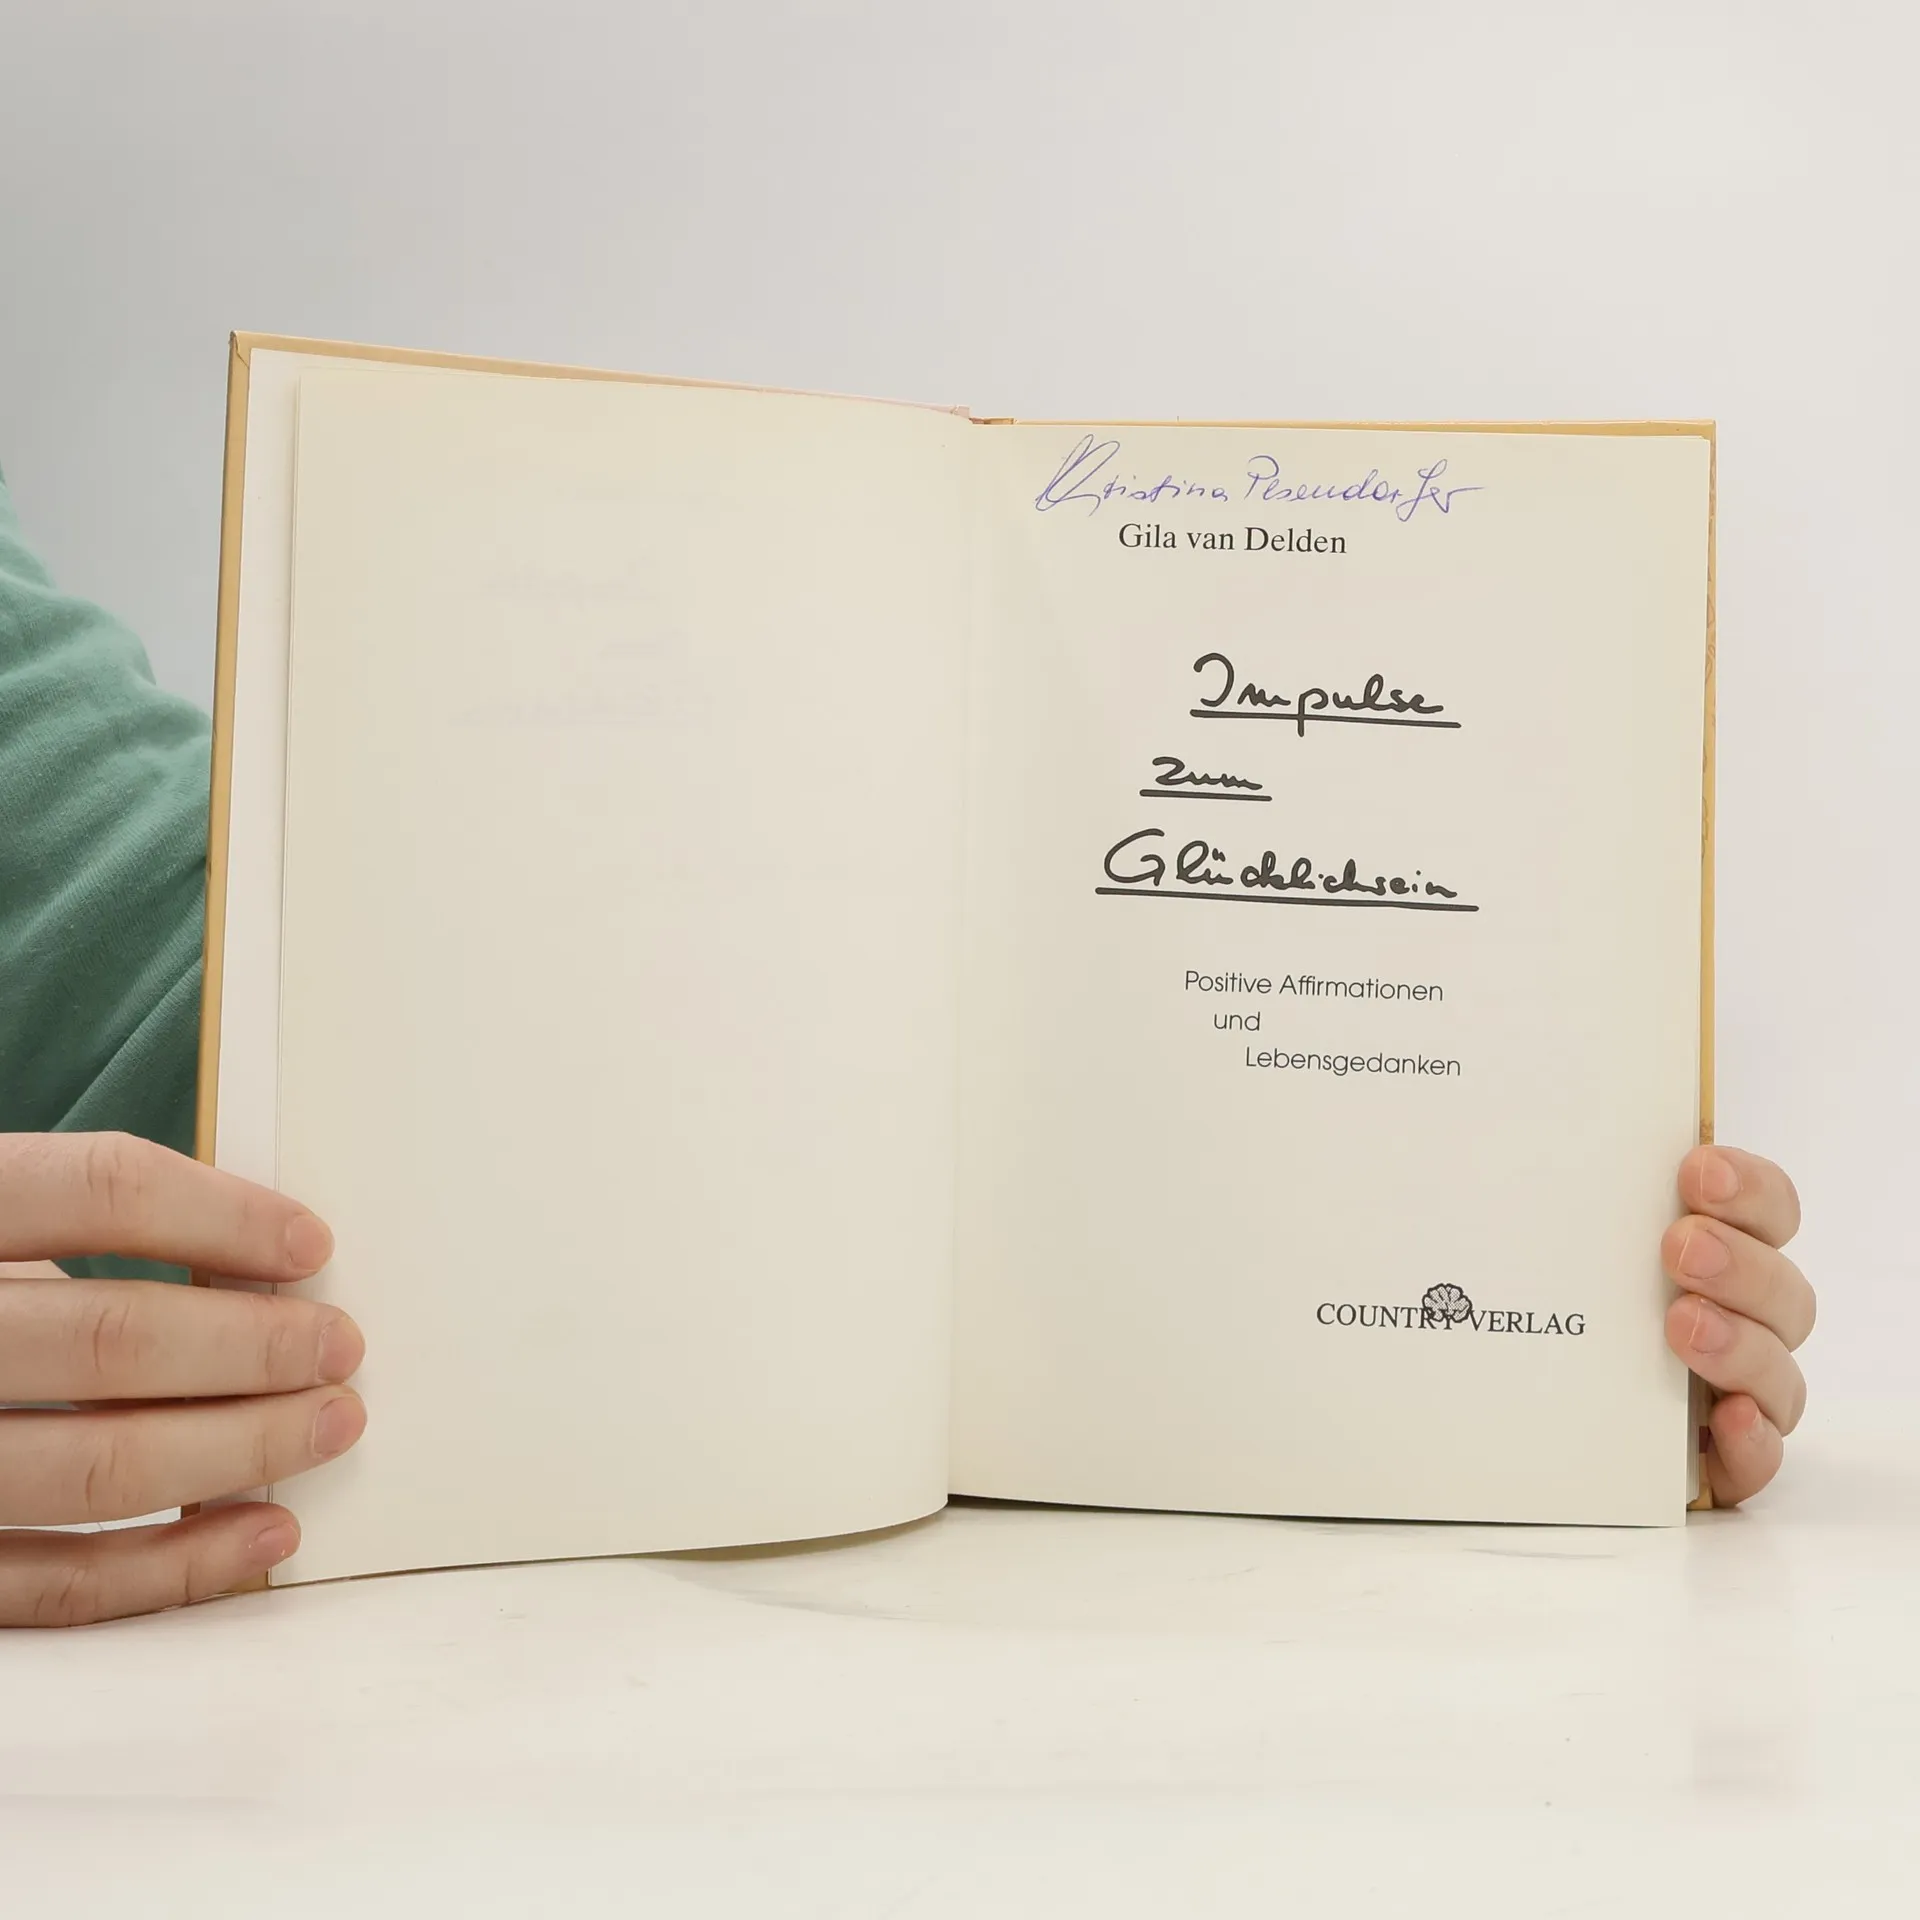 Kristina Pesendorfer
Gila van Delden
Impulse
zum
Glücklichsein
Positive Affirmationen
und
Lebensgedanken
COUNTRY VERLAG